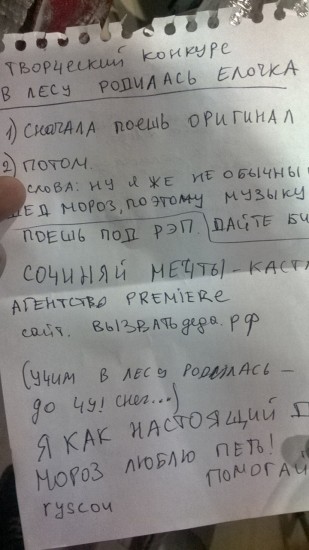 ТВОРЧЕСКИЙ КОНКУРС
В ЛЕСУ РОДИЛАСЬ ЕЛОЧКА
1) СНАЧАЛА ПОЕШЬ ОРИГИНАЛ
2) ПОТОМ.
СЛОВА: НУ Я ЖЕ НЕ ОБЫЧНЫ
ДЕД МОРОЗ, ПОЭТОМУ МУЗЫКУ
ПОЕШЬ ПОД РЭП. ДАЙТЕ БИ
СОЧИНЯЙ МЕЧТЫ - КАСТ
АГЕНТСТВО PREMIERE
сайт. ВЫЗВАТЬдеда.РФ
(УЧИМ В ЛЕСУ РОДИЛАСЬ -
ДО ЧУ! СНЕГ...)
Я КАК НАСТОЯЩИЙ Д
МОРОЗ ЛЮБЛЮ ПЕТЬ!
ПОМОГАЙ